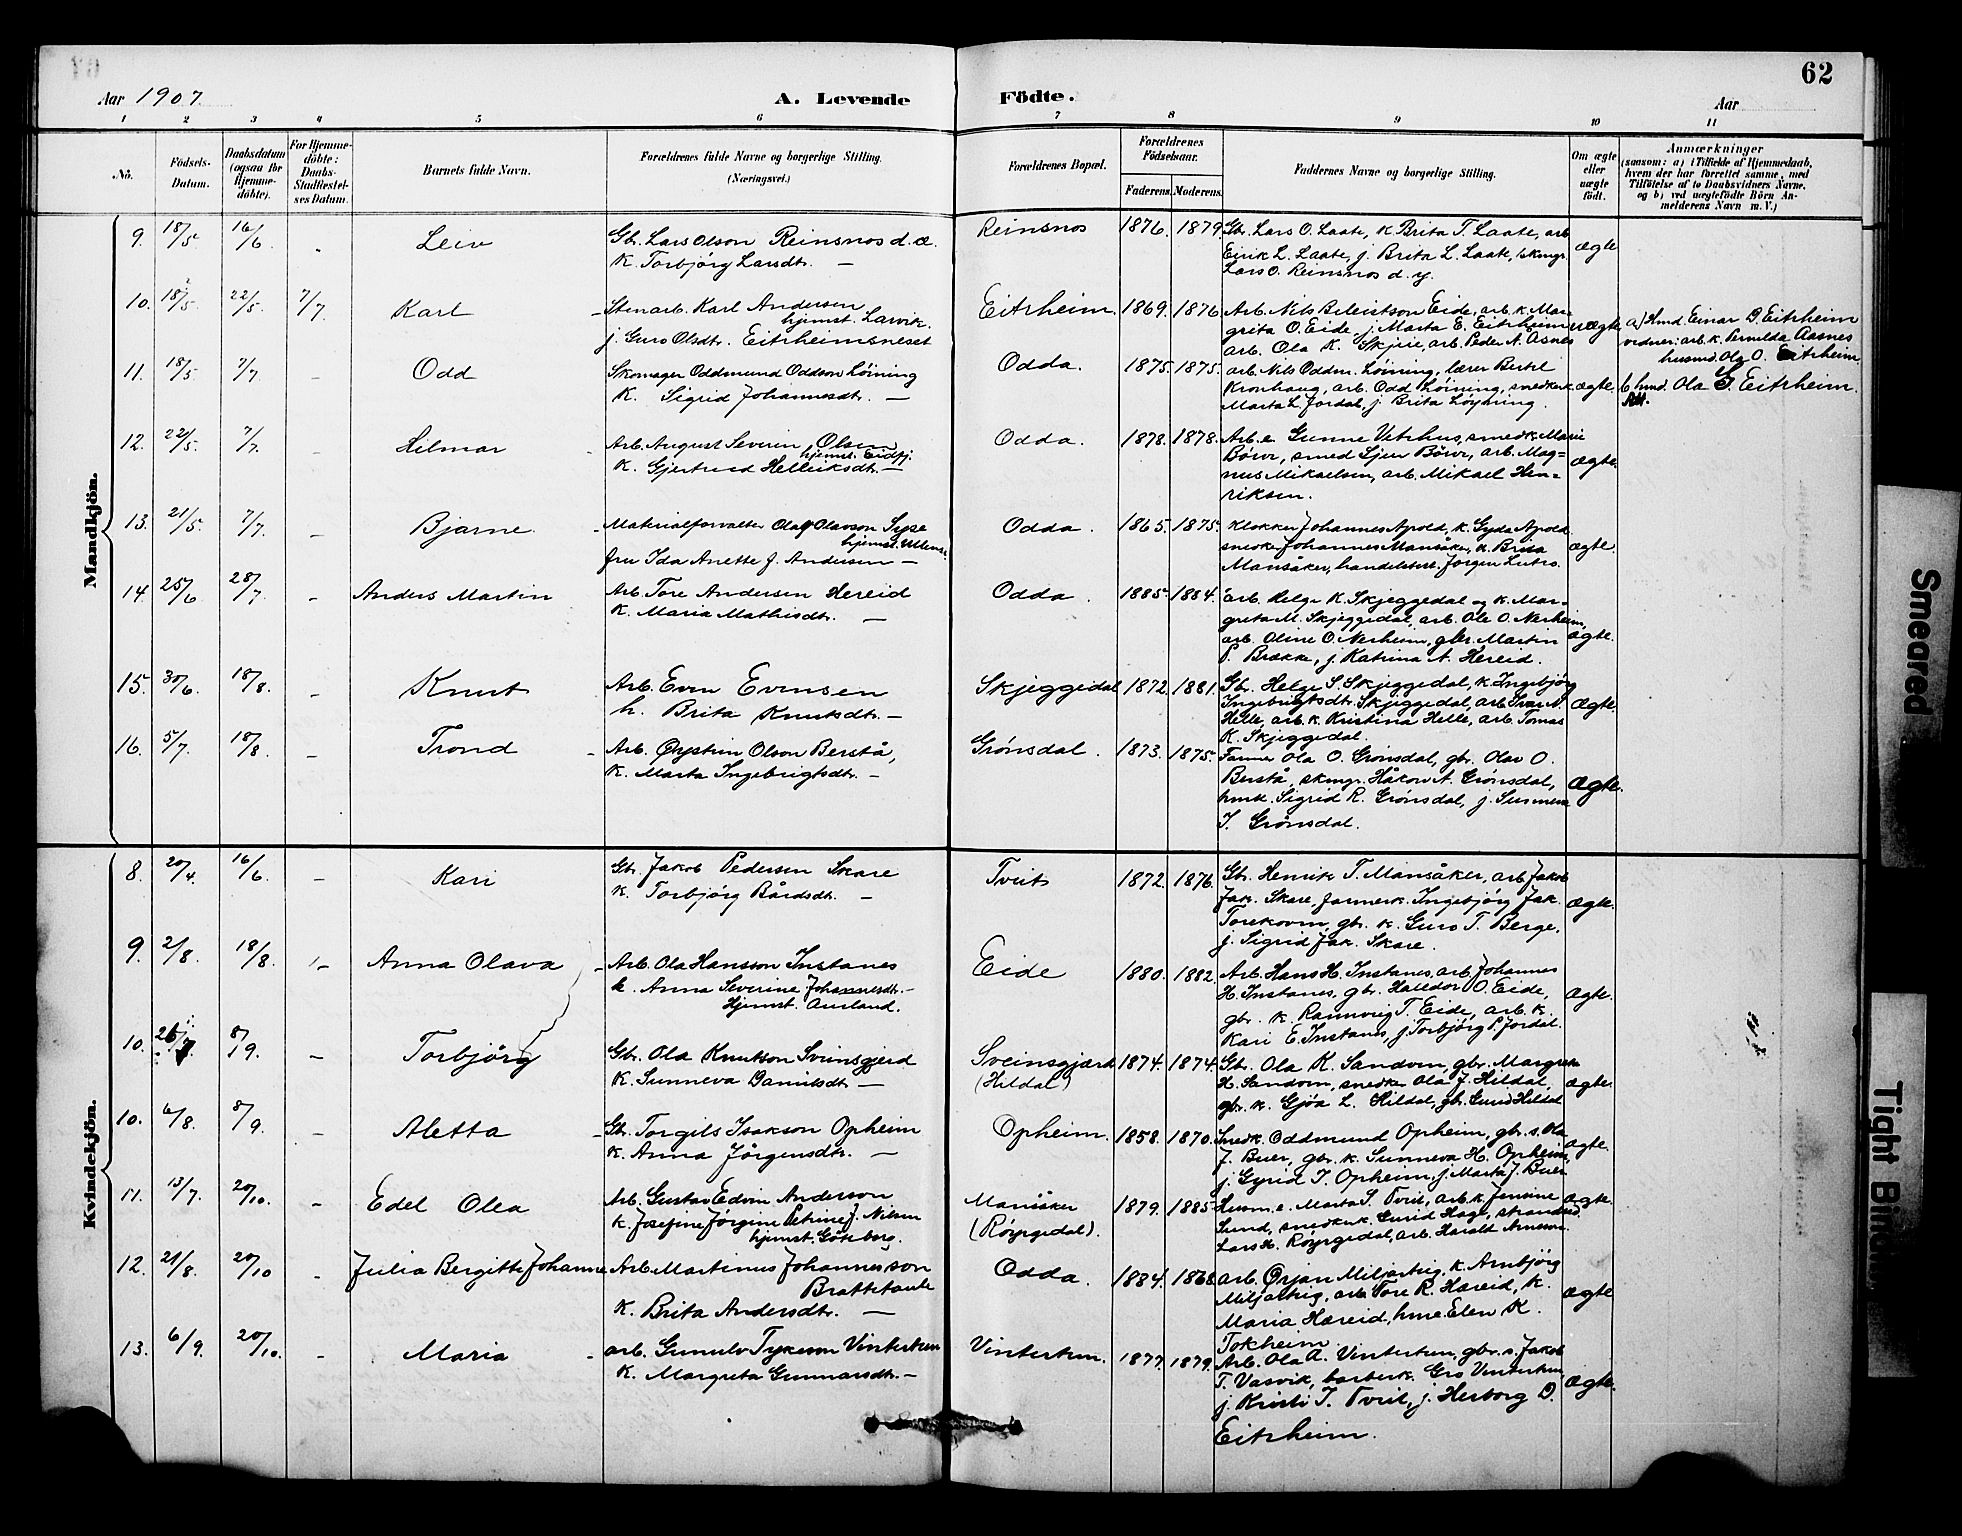 62
Aar 1907.
A. Levende Födte.
Aar
1 2 3 4 5 6 7 8 9 10 11
No.
Födsels-Datum.
Daabsdatum (ogsaa for Hjemme-döbte).
For Hjemme-döbte: Daabs-Stadfæstel-ses Datum.
Barnets fulde Navn.
Forældrenes fulde Navne og borgerlige Stilling.
(Næringsvei.)
Forældrenes Bopæl.
Forældrenes Födselsaar.
Faderens. Moderens.
Faddernes Navne og borgerlige Stilling.
Om ægte eller uægte födt.
Anmærkninger
(saasom: a) i Tilfælde af Hjemmedaab, hvem der har forrettet samme, med Tilföielse af to Daabsvidners Navne, og b) ved uægtefödte Börn An-melderens Navn m. V.)
Mandkjön.
9. 18/5 16/6 - Leiv
Gbr. Lars Olson Reinsnos d. æ.
K. Torbjörg Larsdtr. —
Reinsnos 1876. 1879.
Gbr. Lars O. Laate, K. Brita T. Laate, arb.
Eirik L. Laate, j. Brita L. Laate,
Lars O. Reinsnos d. y.
ægte
10. 18/5 22/5 7/7 Karl
Stenarb. Karl Andersen
hjemst. Larvik.
j. Guro Olsdtr. Eitrheimsneset
Eitrheim. 1869. 1876
Arb. Nils Eide, arb. k. Mar-
grita O. Eide, j. Marta E. Eitrheim
arb. Ola K. Skjeie, arb. Peder A. Åsnes
uægte
a) Hmd. Einar D. Eitrheim
vidner: arb. k. Pernilda Aasnes
husmd. Ola O. Eitrheim
b hmd. Ola G. Eitrheim.
11. 18/5 7/7 - Odd
Skomager Oddmund Oddson Löining
K. Sigrid Johannesdtr. —
Odda. 1875. 1875.
arb. Nils Oddm. Löining, lærer Bertil
Kronhaug, arb. Odd Löining, snedkerk.
Marta L. Jordal, j. Brita Löyning.
ægte.
12. 22/5 7/7. - Hilmar
Arb. August Severin Olsen
hjemst. Eidfj.
K. Gjertrud Helleiksdtr. —
Odda. 1878. 1878.
Arb. e. Gunne Vetrhus, smedk. Marie
Börve, smed Sjur Börve, arb. Mag-
nus Mikaelsen, arb. Mikael Hen-
riksen.
ægte.
13. 21/5. 7/7. - Bjarne
Materialforvalter Olaf Olavson Syse
hjemst. Ullens.
fru Ida Anette J. Andersen —
Odda. 1865. 1875.
Klokker Johannes Apold, k. Gyda Apold
snedker Johannes Mansåker, k. Brita
Mansåker, handelsbest. Jörgen Lutro.
ægte.
14. 25/6 28/7 - Anders Martin
Arb. Tore Andersen Hereid
K. Maria Mathisdtr. —
Odda. 1885. 1884.
arb. Helge K. Skjeggedal og K. Mar-
greta M. Skjeggedal, arb. Ole O. Nerheim,
arb. Oline O. Nerheim, gbr. Martin
P. Brække, j. Katrina A. Hereid.
ægte.
15. 30/6. 18/8. - Knut
Arb. Even Evensen
h. Brita Knutsdtr. —
Skjeggedal 1872. 1881.
Gbr. Helge S. Skjeggedal, k. Ingebjörg
Ingebrigtsdtr. Skjeggedal, arb. Ivar N.
Helle, arb. k. Kristina Helle, arb. Tomas
K. Skjeggedal.
ægte.
16. 5/7. 18/8. - Trond
Arb. Öystein Olson Berstå,
K. Marta Ingebrigtsdtr. —
Grönsdal. 1873. 1875.
Farmer Ola O. Grönsdal, gbr. Olav O.
Berstå, Håkon A. Grönsdal,
hmk. Sigrid R. Grönsdal, j. Sunneva
T. Grönsdal.
ægte.
Kvindekjön.
8. 20/4. 16/6. - Kari
Gbr. Jakob Pedersen Skare
K. Torbjörg Bårdsdtr. —
Tveit 1872. 1876.
Gbr. Henrik T. Mansåker, arb. Jakob
Jak. Skare, farmerk. Ingebjörg Jak.
Torekoven, gbr. k. Guro T. Berge,
j. Sigrid Jak. Skare.
ægte.
9. 2/8. 18/8. - Anna Olava
Arb. Ola Hansson Instanes
k. Anna Severine Johannesdtr. —
Hjemst. Aurland.
Eide 1880. 1882.
Arb. Hans H. Instanes, arb. Johannes
H. Instanes, gbr. Halldor O. Eide,
gbr. k. Rannveig T. Eide, arb. k.
Kari E. Instanes, j. Torbjörg P. Jordal.
ægte.
10. 26/7. 8/9. - Torbjörg
Gbr. Ola Knutson Sveinsgjerd
K. Sunneva Danielsdtr. —
Sveinsgjærd
(Hildal)
1874. 1874.
Gbr. Ola K. Sandven, gbr. Margreta
H. Sandven, snedker Ola J. Hildal,
gbr. k. Gjöa L. Hildal, gbr. Hildal
ægte.
10. 6/8. 8/9. - Aletta
Gbr. Torgils Isakson Opheim
K. Anna Jörgensdtr. —
Opheim. 1858. 1870.
Smedk. Oddmund Opheim, gbr. s. Ola
J. Buer, gbr. k. Sunneva H. Opheim,
j. Gyrid T. Opheim, j. Marta J. Buer
ægte.
11. 13/7. 20/10. - Edel Olea
Arb. Gustav Edvin Anderson
k. Josefine Jörgine Petrine J. Nilsen
hjemst. Göteborg.
Mansåker
(Röyrgedal).
1879. 1885.
Husm. e. Marta S. Tveit, arb. k. Jensine
Lund, snedkerk. Gurid Hage,
Lars H. Röyrgedal, arb. Harald Arnesen.
ægte
12. 21/8. 20/10 - Julia Bergitte Johanne
Arb. Martinus Johannesson
Brattetaule
K. Brita Andersdtr. —
Odda. 1884. 1868
arb. Örjan Miljarteig, k. Arnbjörg
Miljarteig, arb. Tore R. Hæreid, k.
Maria Hæreid, hme. Elen K.
Tokheim
ægte
13. 6/9. 20/10. - Maria
arb. Gunulv Tykeson Vintertun
K. Margreta Gunnarsdtr. —
Vintertun. 1877. 1879.
Arb. Ola A. Vintertun, gbr. s. Jakob
T. Vasvik, barberk. Gro Vintertun,
j. Kristi T. Tveit, j. Herborg D.
Eitrheim.
ægte.
Smeared
Tight Bindin